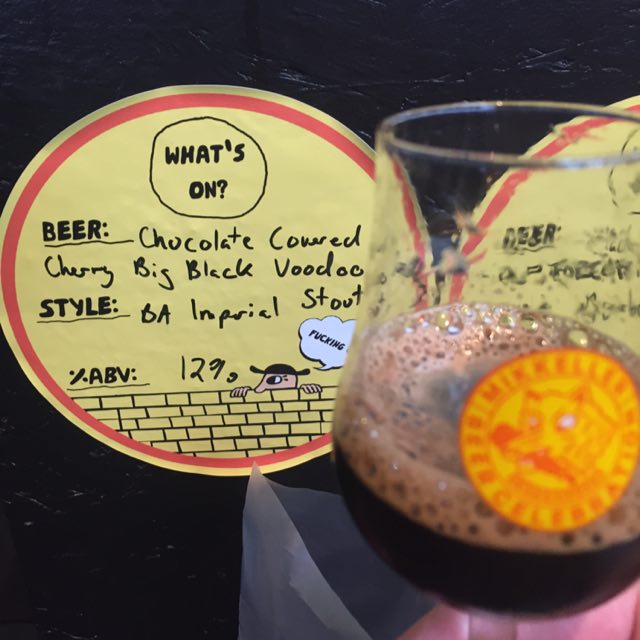 WHAT'S
ON?
BEER: Chocolate Covered
Cherry Big Black Voodoo
STYLE: BA Imperial Stout
FUCKING
%ABV: 12%
BEER:
MIKKELLER
BEER CELEBRATION